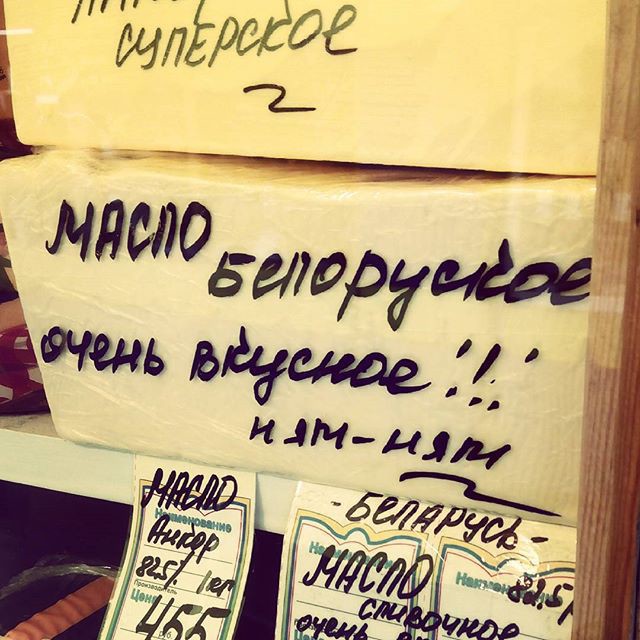 суперское
масло
белоруское
очень вкусное!!!
ням-ням
Масло
Наименование
Анкор
82.5% 1кг
Производитель
Цена
455
-Беларусь-
82.5%
Масло
сливочное
очень